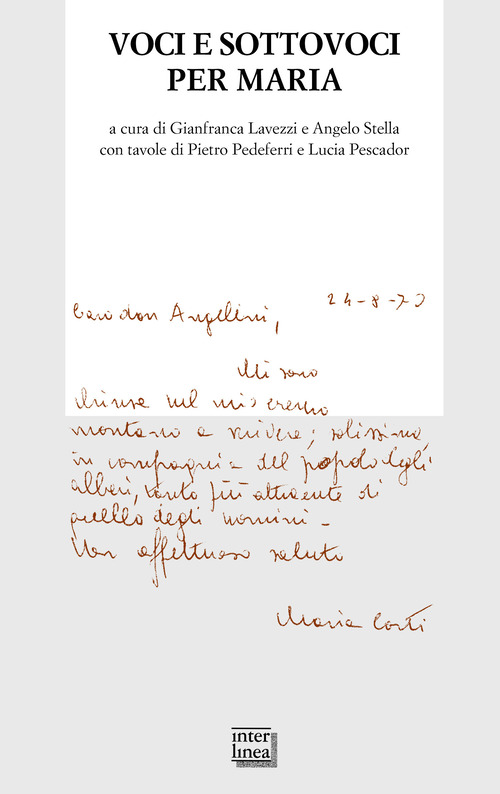 VOCI E SOTTOVOCI
PER MARIA
a cura di Gianfranca Lavezzi e Angelo Stella
con tavole di Pietro Pedeferri e Lucia Pescador
24-8-70
Caro don Angelini,
Mi sono
chiusa nel mio eremo
montano a scrivere; solissima,
in compagnia del popolo degli
alberi, tanto più attraente di
quello degli uomini –
Un affettuoso saluto
Maria Corti
inter
linea